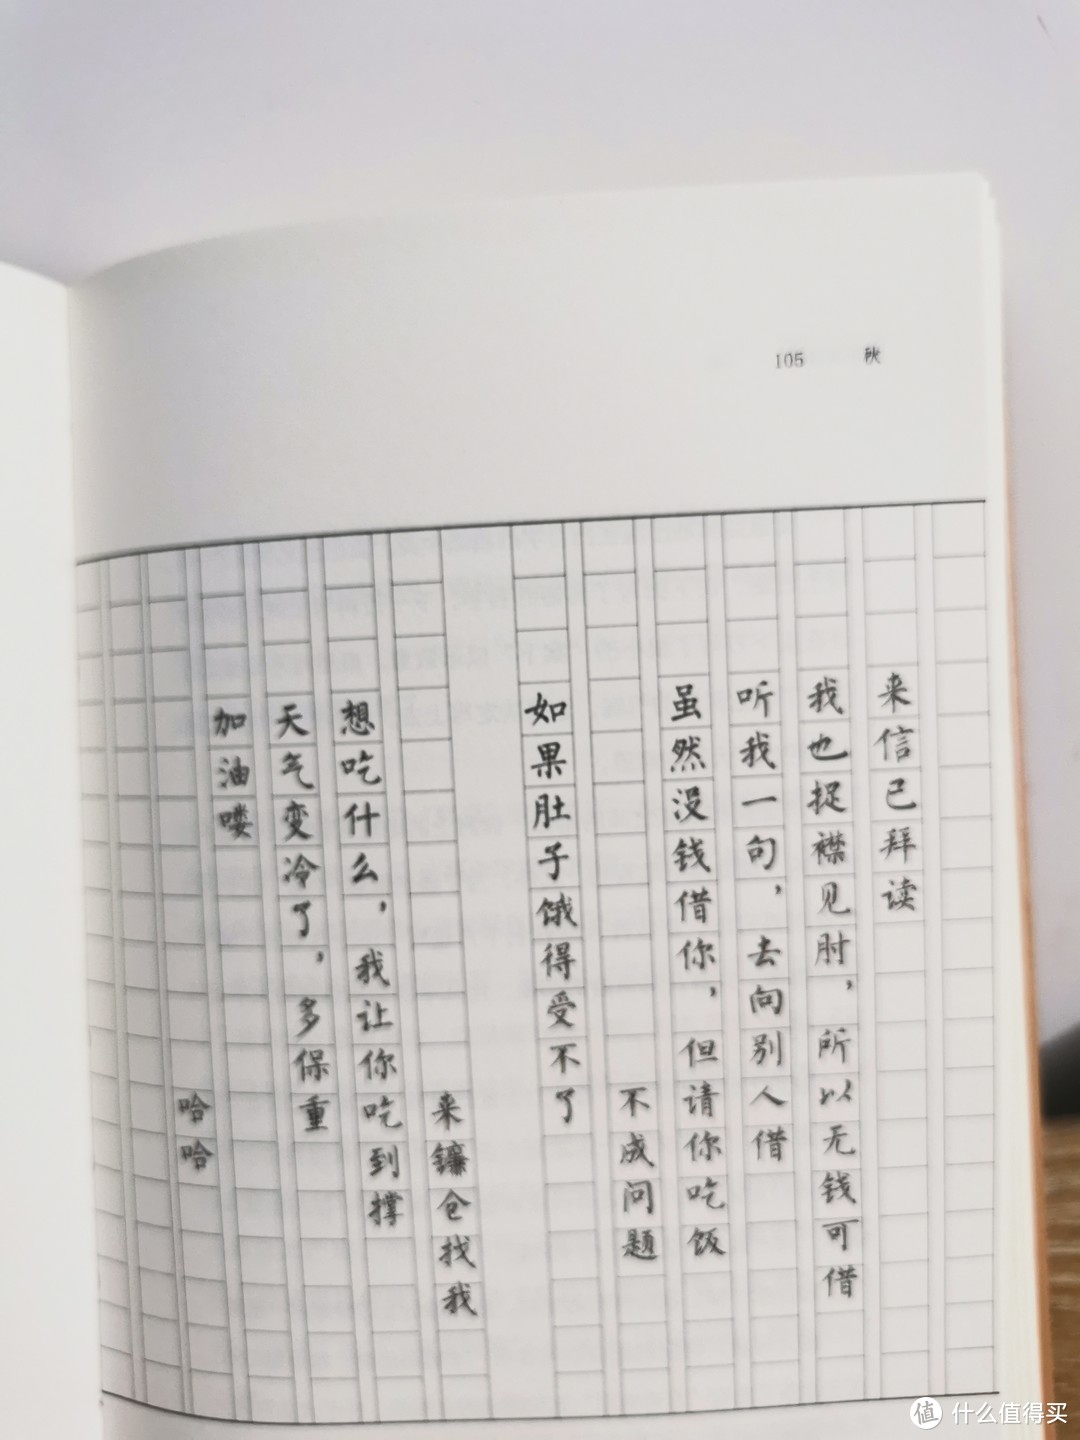 105 秋
来信已拜读
我也捉襟见肘，所以无钱可借
听我一句，去向别人借
虽然没钱借你，但请你吃饭
不成问题
如果肚子饿得受不了
来镰仓找我
想吃什么，我让你吃到撑
天气变冷了，多保重
加油喽
哈哈
值 什么值得买